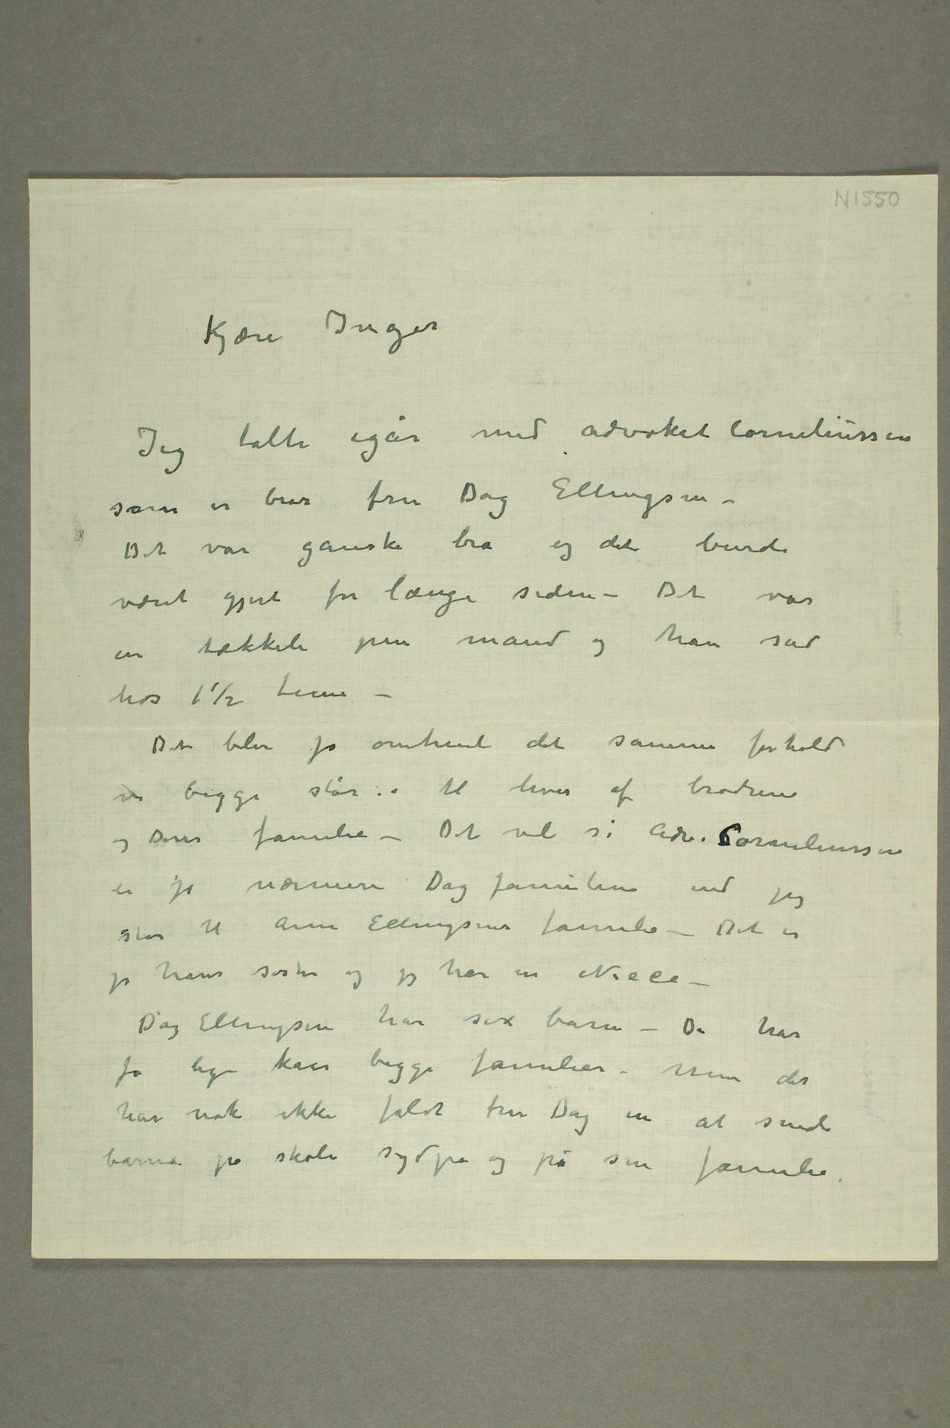 N1550
Kjære Inger
Jeg talte igår med advokat Corneliussen
som er bror fru Dag Ellingsen –
Det var ganske bra og det burde
været gjort for længe siden – Det var
en tækkeli pen mand og han sad
hos 1 1/2 time –
Det blir jo omtrent det samme forhold
vi begge står i til hver af brødrene
og Deres familie – Det vil si Adv. Corneliussen
er jo nærmere Dag familien end jeg
står til Arne Ellingsens familie – Det er
jo hans søster og jeg har en Niece –
Dag Ellingsen har sex barn – De har
jo lige kår begge familier. Men det
har nok ikke faldt fru Dag in at sende
barna på skole sydpå og på sin familie.